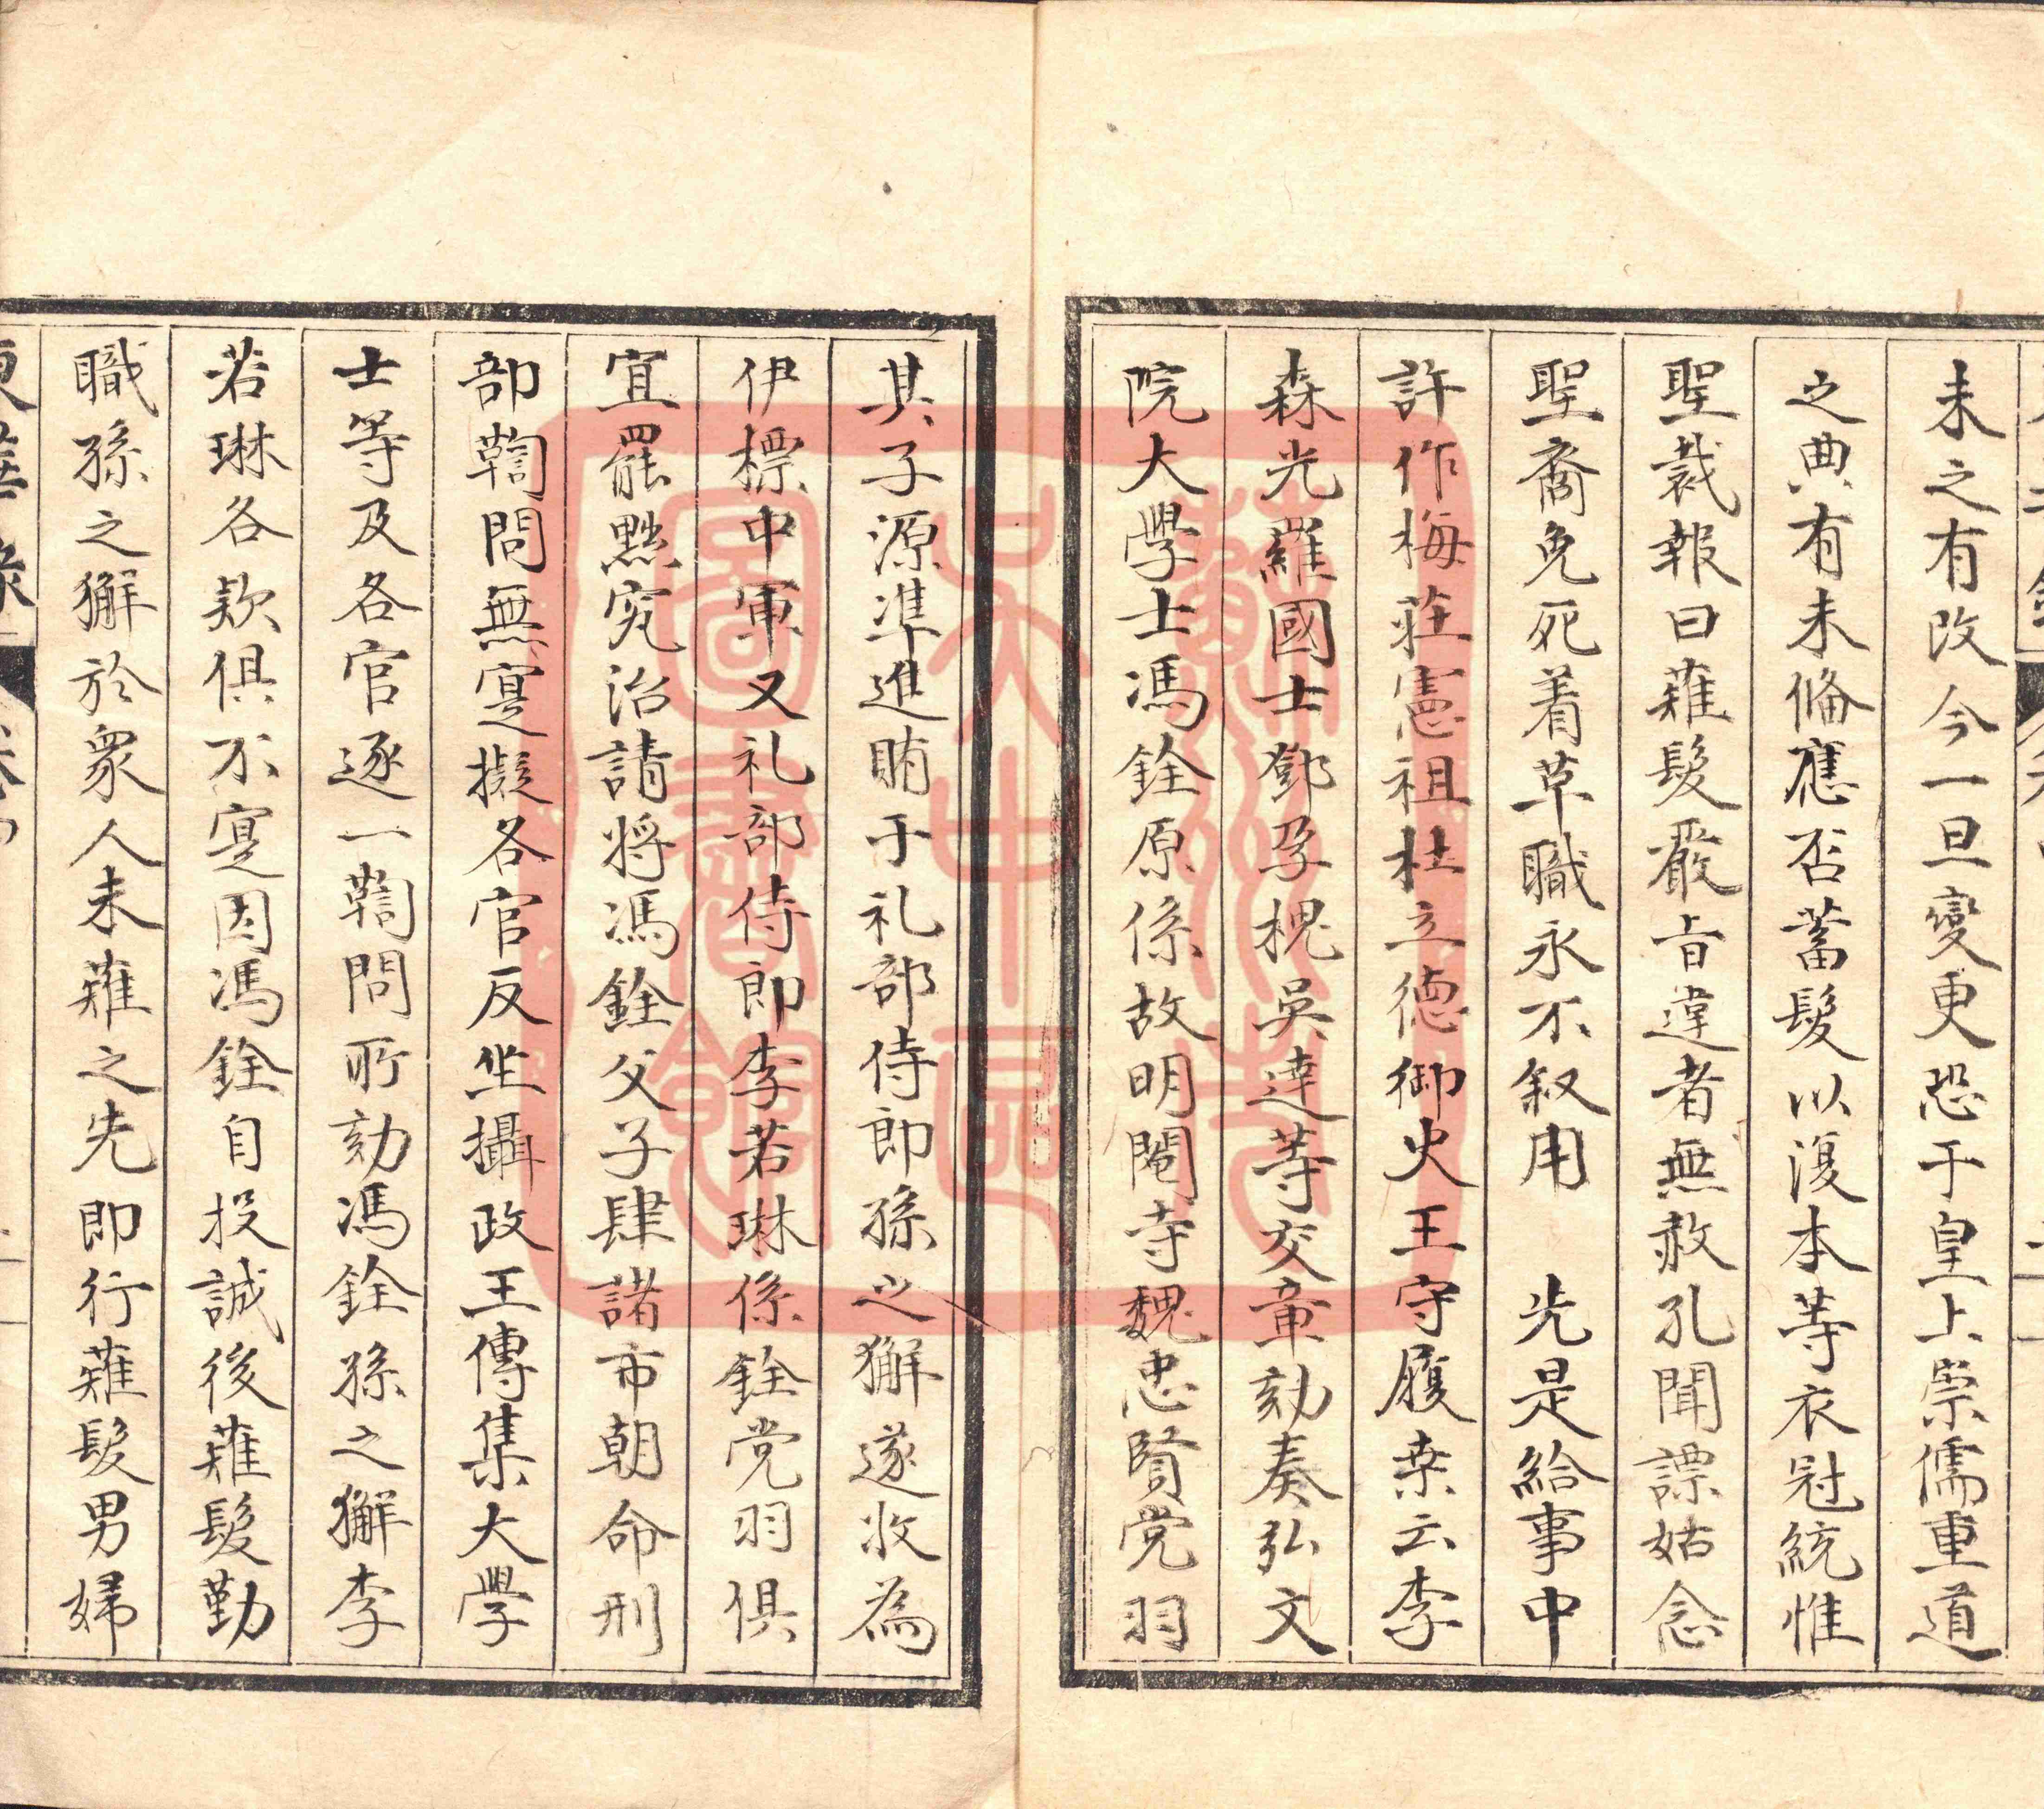 未之有改今一旦變更恐于皇上崇儒重道
之典有未俻應否蓄髮以復本等衣冠統惟
聖裁報曰薙髮嚴旨違者無赦孔聞謤姑念
聖裔免死着革職永不叙用　先是給事中
許作梅莊憲祖杜立德御史王守履桒云李
森光羅國士鄧孕槐吳達等交章劾奏弘文
院大學士馮銓原係故明閹寺魏忠賢党羽
其子源准進賄于礼部侍郎孫之獬遂收為
伊標中軍又礼部侍郎李若琳係銓党羽俱
宜罷黜究治請将馮銓父子肆諸市朝命刑
部鞫問無寔擬各官反坐攝政王傳集大學
士等及各官逐一鞫問所劾馮銓孫之獬李
若琳各欵俱不寔因馮銓自投誠後薙髮勤
職孫之獬於眾人未薙之先即行薙髮男婦
東華錄